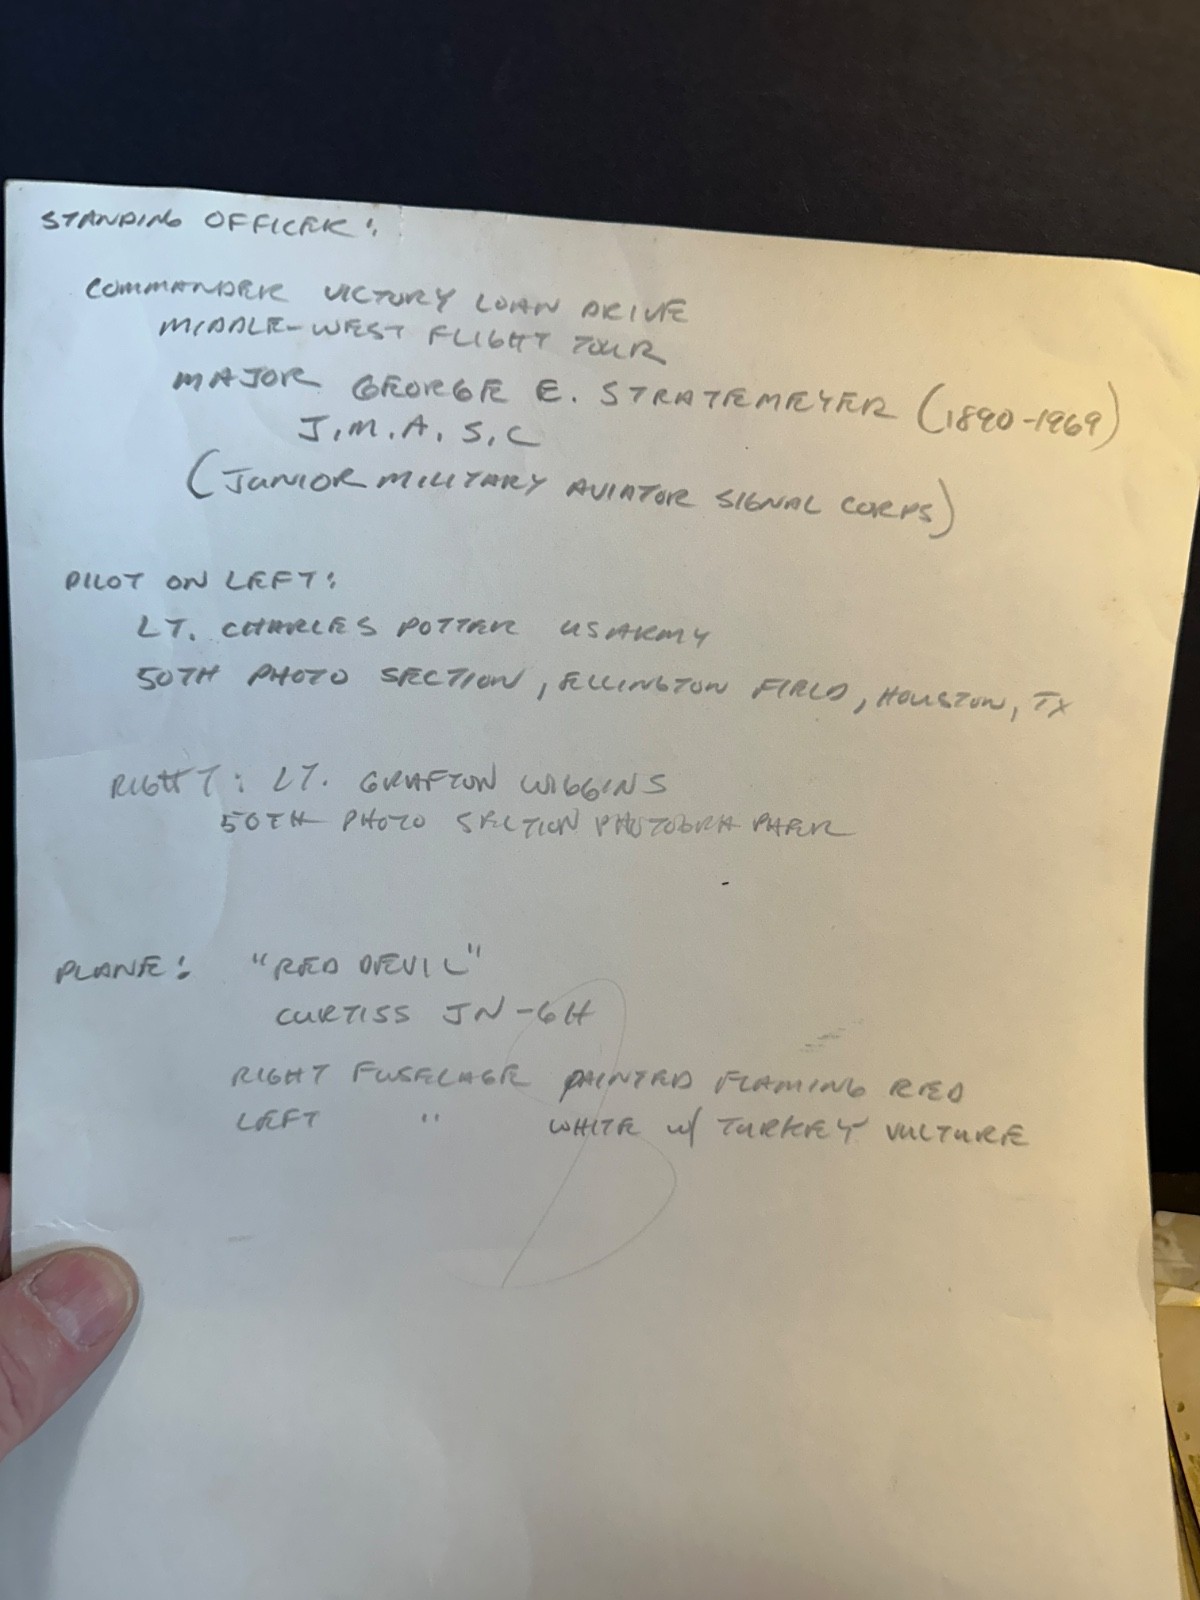 STANDING OFFICER:
COMMANDER VICTORY LOAN DRIVE
MIDDLE-WEST FLIGHT TOUR
MAJOR GEORGE E. STRATEMEYER (1890-1969)
J.M.A.S.C
(JUNIOR MILITARY AVIATOR SIGNAL CORPS)
PILOT ON LEFT:
LT. CHARLES POTTER US ARMY
50TH PHOTO SECTION, ELLINGTON FIELD, HOUSTON, TX
RIGHT: LT. GRAFTON WIGGINS
50TH PHOTO SECTION PHOTOGRAPHER
PLANE: "RED DEVIL"
CURTISS JN-6H
RIGHT FUSELAGE PAINTED FLAMING RED
LEFT " WHITE w/ TURKEY VULTURE